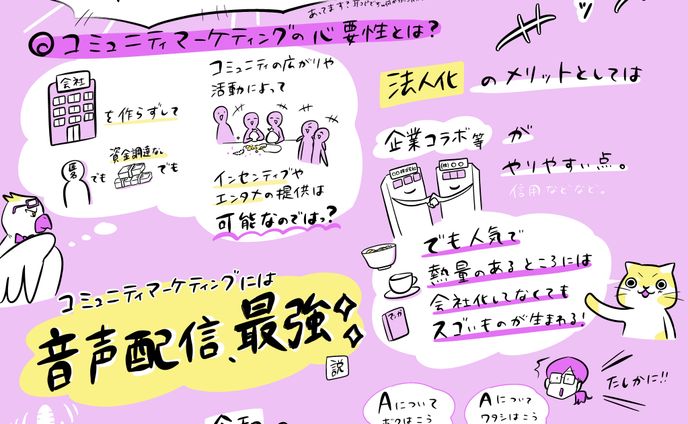 コミュニティマーケティングの必要性とは？
会社
を作らずして
匿名
でも
資金調達なし
でも
コミュニティの広がりや
活動によって
インセンティブや
エンタメの提供は
可能なのではっ？
法人化 のメリットとしては
企業コラボ等 が
やりやすい点。
信用などなど。
でも人気で
熱量のあるところには
会社化してなくても
スゴいものが生まれる！
コミュニティマーケティングには
音声配信、最強！
説
たしかに!!
Aについて
ボクはこう
Aについて
ワタシはこう